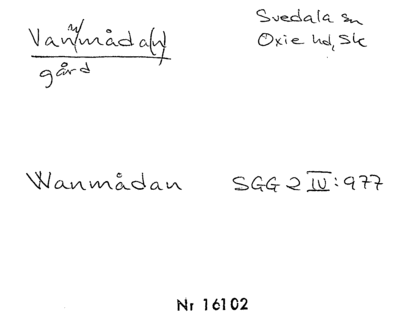 Van/n/måda(n)
gård
Svedala sn
Oxie hd, Sk
Wanmådan SGG 2 IV:977
Nr 16102